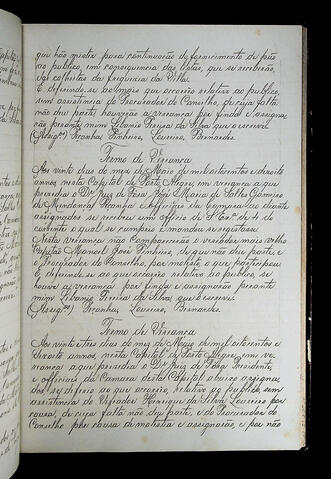 que não mostre para continuação do fornecimento de pão
ao publico, em consequencia das listas, que se receberão,
das colheitas da freguezia da Villa.
E deferindo se ao mais que occorão relativo ao publico,
sem assistencia do Procurador do Conselho, de cuja falta
não deu parte, houverão a vereança por finda e assigna
rão perante mim Libanio Pereira da Silva que o escrevi
(Assig.os) Aranha, Pinheiro, Loureiro, Bernardes.
Termo de Vereança
Aos vinte dias do mez de Maio de mil oitocentos e dezoito
annos, nesta Capital de Porto Alegre, em vereança a que
presidia o D.r Juiz de Fora José Maria de Salles Gameiro
de Mendonça Peçanha e officiaes da Camara ao diante
assignados se recebeu um officio de S. Ex.a de 4 do
corrente o qual se cumprio e mandou se registar.
Nesta vereança não compareceo o vereador mais velho
Capitão Manoel José Pinheiro, de que não deu parte, e
o Procurador do Conselho, por molestia, o que participou.
E deferindo se ao que occorão relativo ao publico, se
houve a vereança por finda e assignarão perante
mim Libanio Pereira da Silva que o escrevi
(Assig.os) Peçanha, Loureiro, Bernardes.
Termo de Vereança
Aos vinte e tres dias do mez de Maio de mil oitocentos e
dezoito annos, nesta Capital de Porto Alegre, em ve
reança a que presidia o D.r Juiz de Fora Presidente,
e officiaes da Camara desta Capital abaixo assigna
dos, se deferio ao que occorão, relativo ao publico sem
assistencia do Vereador Henrique da Silva Loureiro por
causa, de cuja falta não deu parte, e do Procurador do
Conselho por causa da molestia e assignarão, e por não